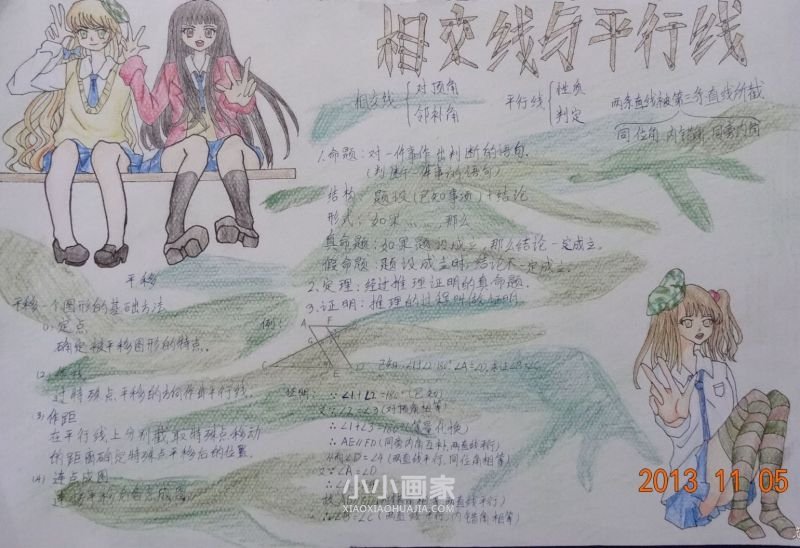 相交线与平行线
相交线 对顶角 邻补角
平行线 性质 判定
两条直线被第三条直线所截
同位角 内错角 同旁内角
1.命题：对一件事作出判断的语句.
(判断一件事的语句)
结构：题设(已知事项)+结论
形式：如果……那么
真命题：如果题设成立，那么结论一定成立.
假命题：题设成立时，结论不一定成立.
2.定理：经过推理证明的真命题.
3.证明：推理的过程叫做证明.
平移
平移一个图形的基本方法
(1)定点
确定被平移图形的特点.
(2)
过特殊点平移的方向作出平行线.
(3)作距
在平行线上分别截取特殊点移动
的距离确定特殊点平移后的位置.
(4)连点成图
例：
A F
G
C
E
证明：∵∠1+∠2=180°(已知)
又∵∠2=∠3(对顶角相等)
∴∠1+∠3=180°(等量代换)
∴AE∥FD(同旁内角互补,两直线平行)
∠D=∠A(两直线平行,同位角相等)
又∵∠A=∠D
∴∠B=∠C(两直线平行,内错角相等)
小小画家
XIAOXIAOHUAJIA.COM
2013 11 05